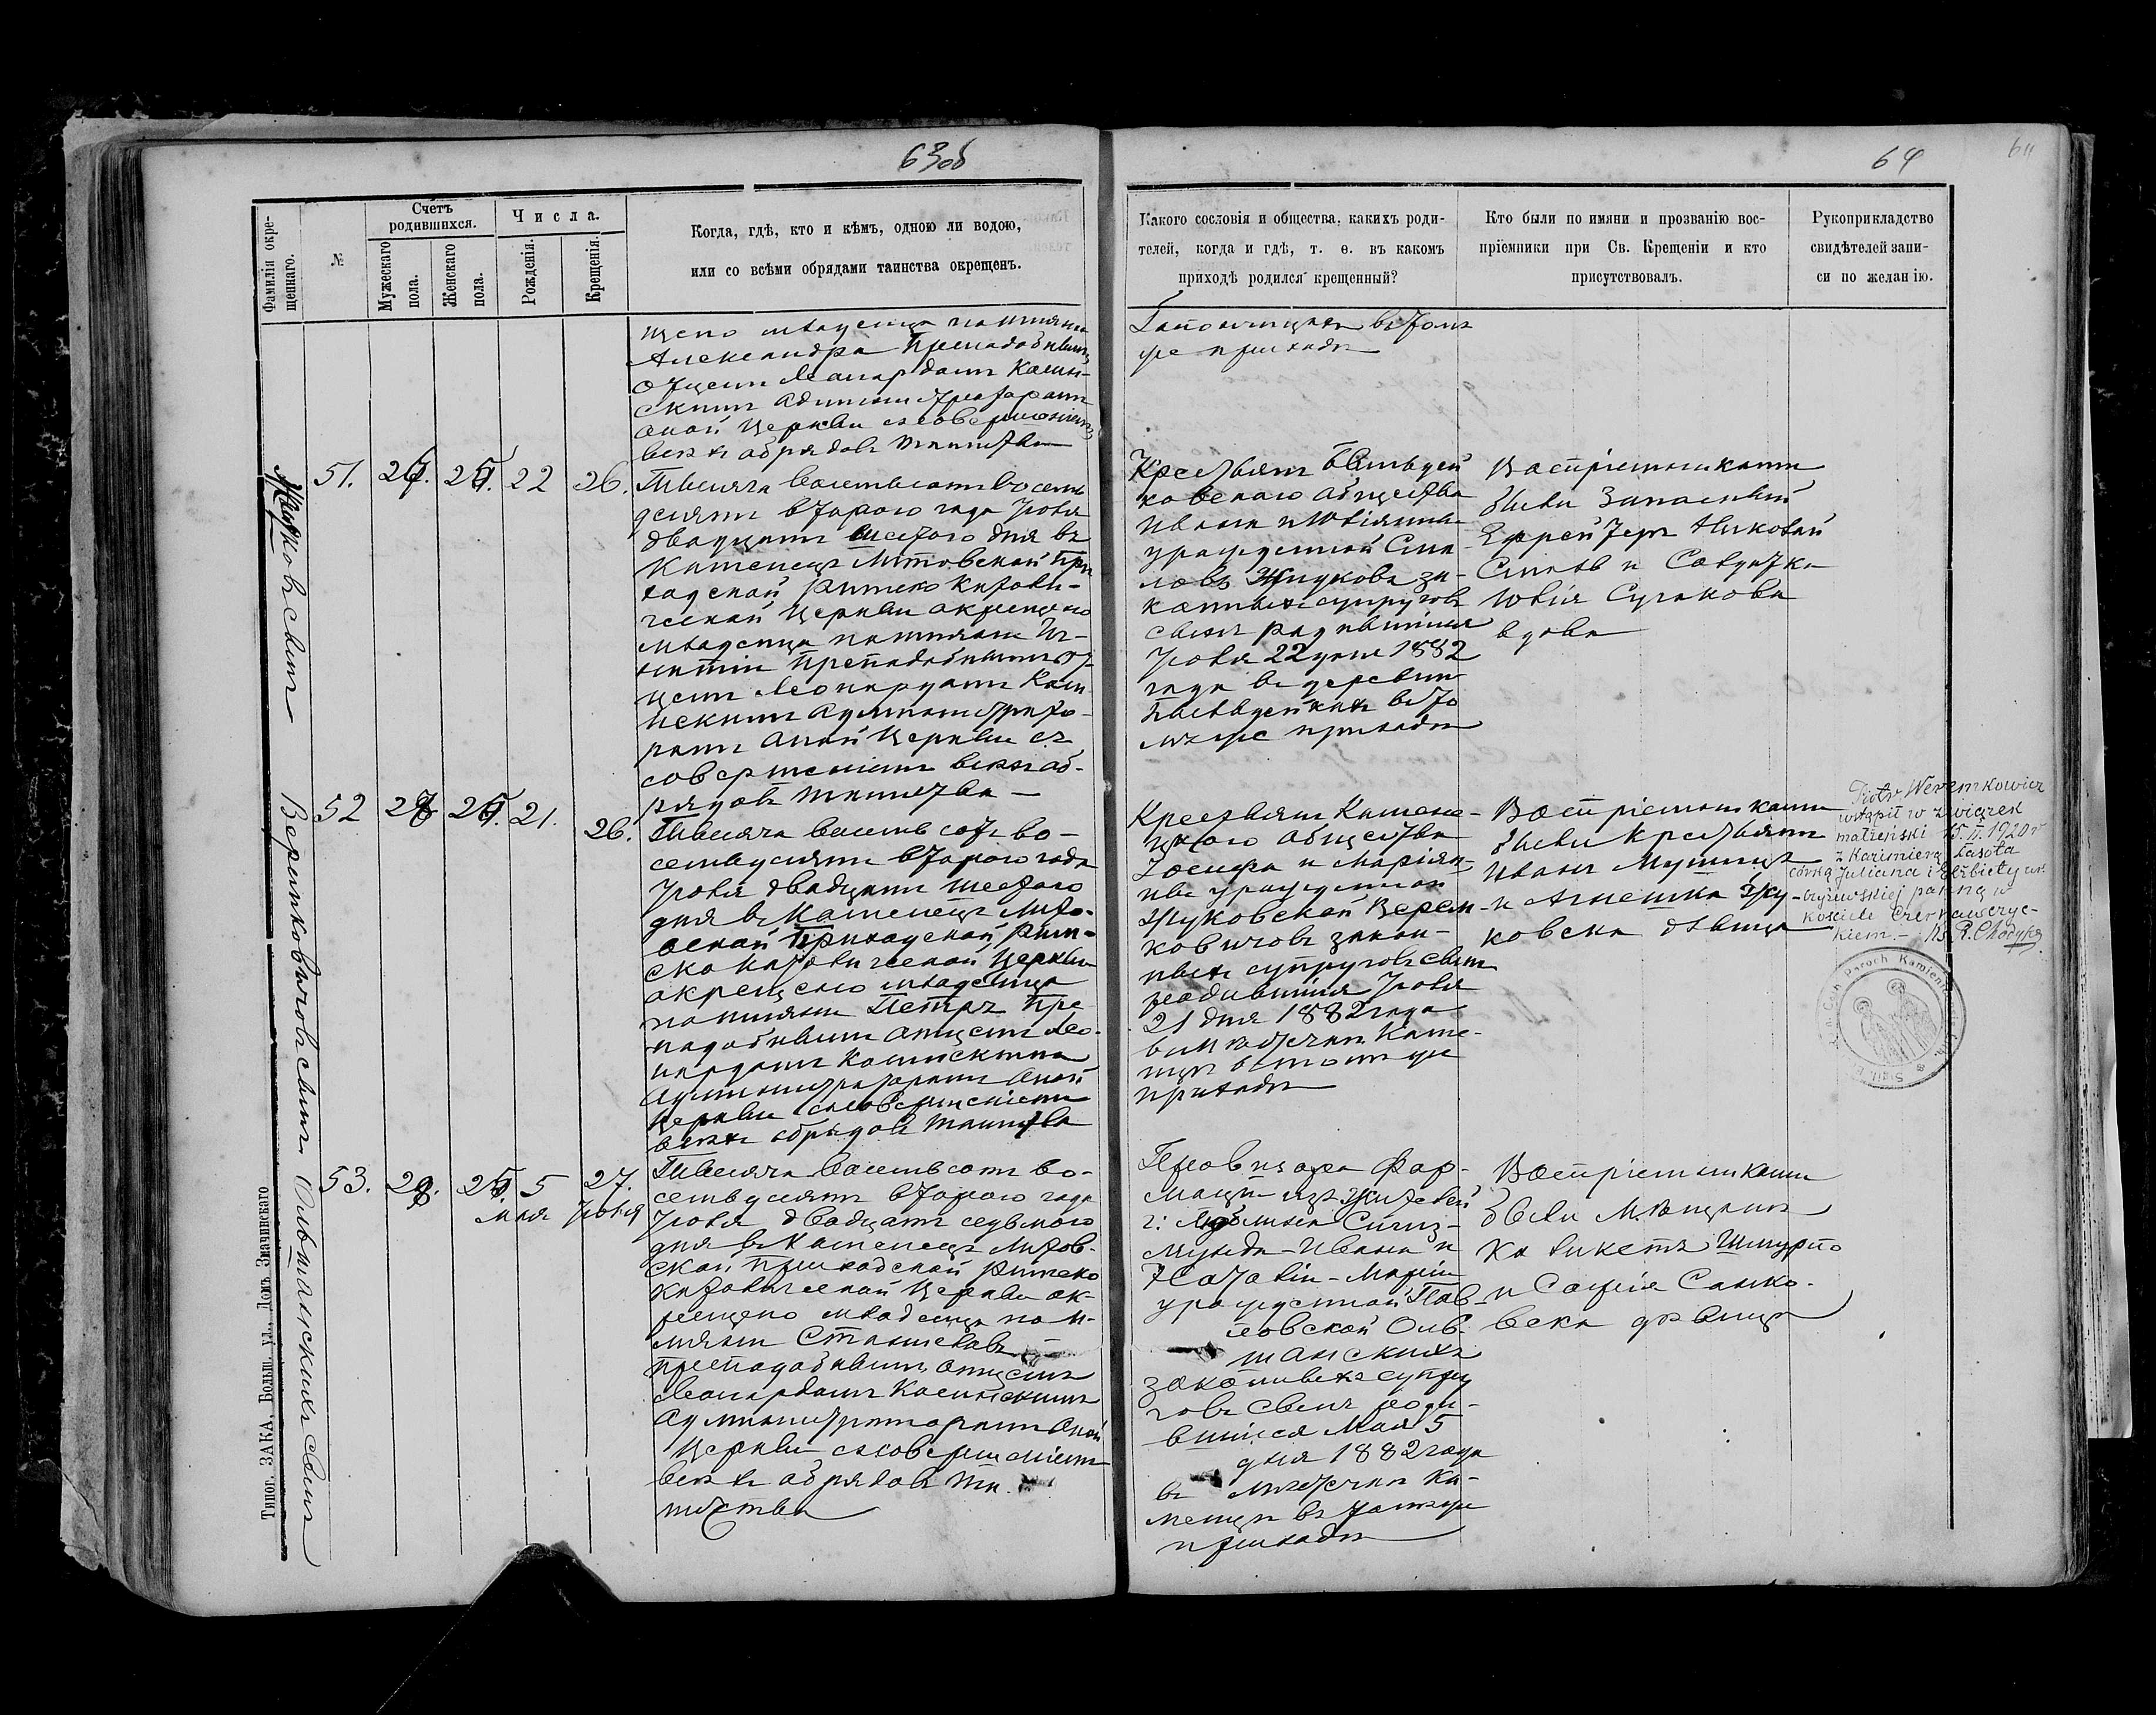 63об
Фамилія окре-
щеннаго.
№
Счетъ
родившихся.
Мужескаго
пола.
Женскаго
пола.
Числа.
Рожденія.
Крещенія.
Когда, гдѣ, кто и кѣмъ, одною ли водою,
или со всѣми обрядами таинства окрещенъ.
щено младенца по имяни
Александра Преподобнымъ
отцемъ Леонардомъ Касин-
скимъ Администраторомъ
оной церкви съ совершеніемъ
всѣхъ обрядовъ таинства
Жуковъ сынъ
51.
22
26.
Тысяча восемьсотъ восемь
десятъ втораго года Іюля
двадцать шестаго дня въ
Каменецъ Литовской При
ходской Римско Католи-
ческой Церкви окрещено
младенца по имяни Иг-
натій Преподобнымъ От-
цемъ Леонардомъ Касин
искимъ Администрато-
ромъ оной Церкви съ
совершеніемъ всѣхъ об-
рядовъ таинства
Веремковичовъ сынъ
52
21.
26.
Тысяча восемь сотъ во-
семьдесятъ втораго года
Іюля двадцать шестаго
дня въ Каменецъ Лито-
вской Приходской Рим-
ско Католической Церкви
окрещено младенца
по имяни Петръ Пре-
подобнымъ Отцемъ Лео-
нардомъ Касинскимъ
Администраторомъ оной
Церкви съ совершеніемъ
всѣхъ обрядовъ таинства
Ольшанскихъ сынъ
53.
5
мая
27.
Іюля
Тысяча восемьсотъ во-
семьдесятъ втораго года
Іюля двадцать седьмого
дня въ Каменецъ Литов-
ской Приходской Римско
Католической Церкви ок-
рещено младенца по и-
мяни Станиславъ
Преподобнымъ Отцемъ
Леонардомъ Касинскимъ
Администраторомъ оной
Церкви съ совершеніемъ
всѣхъ обрядовъ та
инства
Типог. ЗАКА, Больш. ул., Домъ Значинскаго
64
Какого сословія и общества, какихъ роди-
телей, когда и гдѣ, т. е. въ какомъ
приходѣ родился крещенный?
Кто были по имяни и прозванію вос-
пріемники при Св. Крещеніи и кто
присутствовалъ.
Рукоприкладство
свидѣтелей запи-
си по желанію.
въ томъ
же приходѣ
Крестьянъ
ковского общества
Ивана и Юліянны
урожденной Сма-
ловъ Жуковъ за-
конныхъ супруговъ
сынъ родившійся
Іюля 22 дня 1882
года въ деревни
въ то
мъ же приходѣ
Воспріемниками
были Запасный
Ефрейторъ Николай
и Солдатка
Юлія Сугакова
вдова
Крестьянъ Камене-
цкого общества
Іосифа и Маріян-
ны урожденной
Жуковской Верем-
ковичовъ закон-
ныхъ супруговъ сынъ
родившійся Іюля
21 дня 1882 года
въ мѣстечкѣ Каме-
нцѣ въ томъ же
приходѣ
Воспріемниками
были крестьянинъ
Иванъ
и Агнешка Жу-
ковска дѣвица
Piotr Weremkowicz
wstąpił w związek
małżeński 15.II.1920 r
z Kazimierą Lasota
córką Juliana i Elżbiety
panną w
kościele Czernawczyc-
kiem. – Ks. R. Chodyka
Провизора Фар-
маціи изъ жителей
г. Сигиз-
мунда-Ивана и
Наталіи-Маріи
урожденной Пав-
ловской Оль-
шанскихъ
законныхъ супру
говъ сынъ роди-
вшійся Мая 5
дня 1882 года
въ мѣстечкѣ Ка-
менцѣ въ томъ же
приходѣ
Воспріемниками
были Мѣщанинъ
и Софія Санко-
вска дѣвица